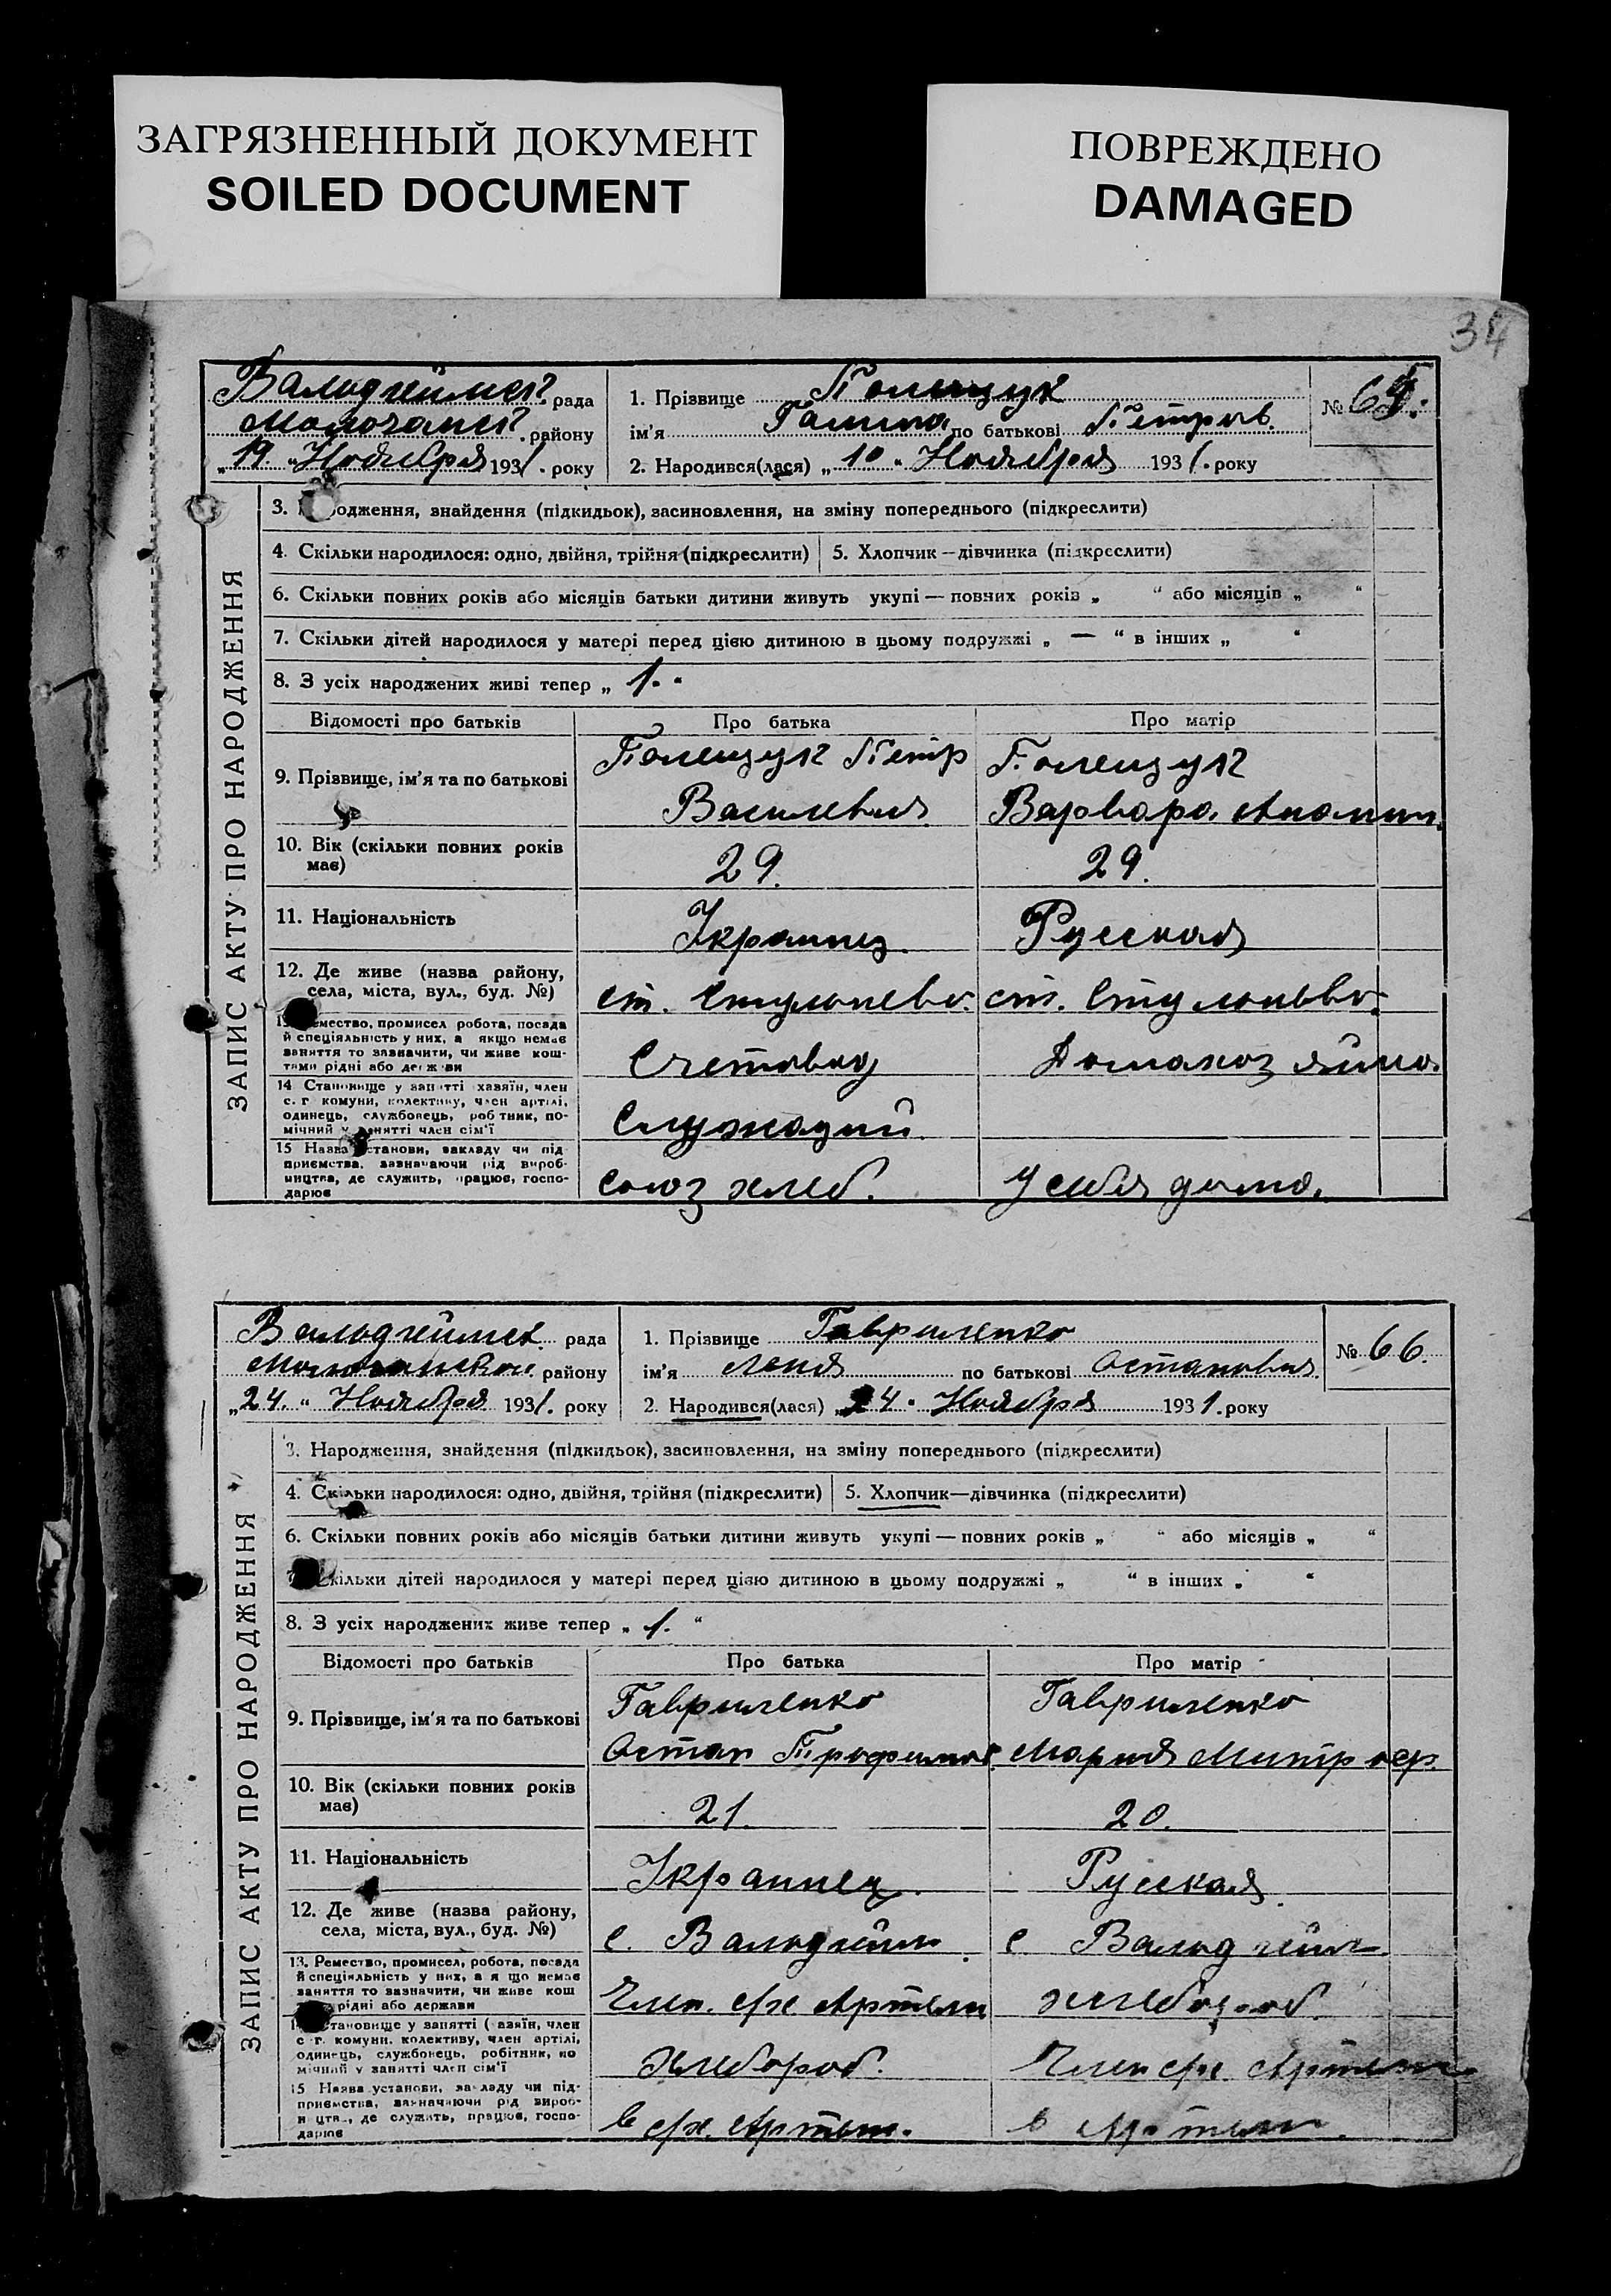 ЗАГРЯЗНЕННЫЙ ДОКУМЕНТ
SOILED DOCUMENT
ПОВРЕЖДЕНО
DAMAGED
34
ЗАПИС АКТУ ПРО НАРОДЖЕННЯ
Вальдгеймск. рада
района району
„19 “ Ноября 1931. року
1. Прізвище Полещук
ім'я Галина по батькові Петров.
№ 65.
2. Народився(лася) „ 10 “ Ноября 1931. року
3. одження, знайдення (підкидьок), засиновлення, на зміну попереднього (підкреслити)
4. Скільки народилося: одно, двійня, трійня (підкреслити)
5. Хлопчик—дівчинка (підкреслити)
6. Скільки повних років або місяців батьки дитини живуть укупі — повних років „ “ або місяців „ “
7. Скільки дітей народилося у матері перед цією дитиною в цьому подружжі „ — “ в інших „ “
8. З усіх народжених живі тепер „ 1. “
Відомості про батьків Про батька Про матір
9. Прізвище, ім'я та по батькові
Полещук Петр
Василевич
Полещук
Варвара
10. Вік (скільки повних років має)
29. 29.
11. Національність
Украинец. Русская
12. Де живе (назва району, села, міста, вул., буд. №)
ст. Стульнево. ст. Стульнево.
мество, промисел робота, посада
й спеціяльність у них, а якщо немає
заняття то зазначити, чи живе кош-
тами рідні або держави
Счетовод
14 Становище у занятті хазяїн, член
с. г комуни, колективу, член артілі,
одинець, службовець, робтник, по-
мічний у занятті член сім'ї
Служащий.
15 Назва установи, закладу чи під
приємства, зазначаючи рід вироб-
ництва, де служить, працює, госпо-
дарює
Союз хлеб. У себя дома.
ЗАПИС АКТУ ПРО НАРОДЖЕННЯ
Вальдгеймск. рада
Молочанском. району
„24. “ Ноября 1931. року
1. Прізвище Гавриленко
ім'я Леня по батькові Остапович.
№ 66.
2. Народився(лася) „ 24 “ Ноября 1931. року
3. Народження, знайдення (підкидьок), засиновлення, на зміну попереднього (підкреслити)
4. Скільки народилося: одно, двійня, трійня (підкреслити)
5. Хлопчик—дівчинка (підкреслити)
6. Скільки повних років або місяців батьки дитини живуть укупі — повних років „ “ або місяців „ “
кільки дітей народилося у матері перед цією дитиною в цьому подружжі „ “ в інших „ “
8. З усіх народжених живе тепер „ 1. “
Відомості про батьків Про батька Про матір
9. Прізвище, ім'я та по батькові
Гавриленко
Остап Трофимов.
Гавриленко
Мария Митроф.
10. Вік (скільки повних років має)
21. 20.
11. Національність
Украинец. Русская.
12. Де живе (назва району, села, міста, вул., буд. №)
с. Вальдгейм. с Вальдгейм.
13. Ремество, промисел, робота, посада
й спеціяльність у них, а я що немає
заняття то зазначити, чи живе кош
рідні або держави
Член. с/х Артели хлебороб.
тановище у занятті ( азяїн, член
с г. комуни, колективу, член артілі,
одинець, службовець, робітник, по
мічний у занятті член сім'ї
Хлебороб. Член с/х. Артели
15 Назва установи, закладу чи під-
приємства, зазначаючи рід вироб-
н цтва, де служить, працює, госпо-
дарює
в с/х. Артели. в Артели.